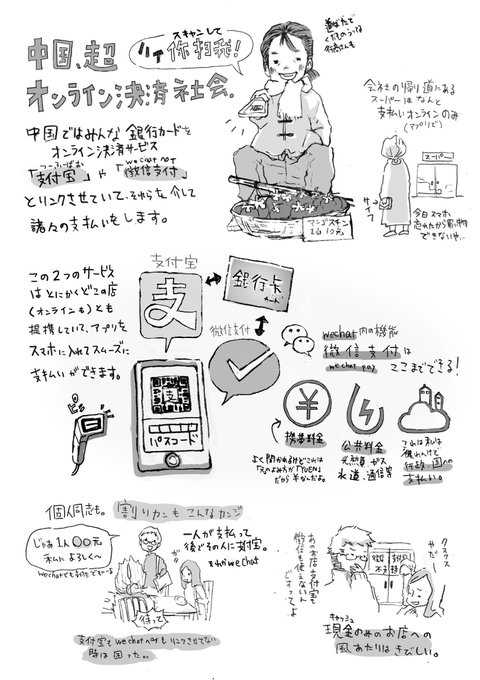 中国、超
オンライン決済社会.
スキャンして
你扫我!
道ばたで
くだものうってる
行商さんも
中国ではみんな銀行カードを
オンライン決済サービス
「支付宝」や「微信支付」
wechat pay
とリンクさせていて、それらを介して
諸々の支払いをします。
マンゴスチン
1山10元
会社の帰り道にある
スーパーはなんと
支払いオンラインのみ
(アプリで)
スーパー
サイフ
今日スマホ
忘れたから買い物
できないや…
この2つのサービス
はとにかくどこの店
(オンラインも)とも
提携していて、アプリを
スマホに入れてスムーズに
支払いができます。
支付宝
支
銀行卡
カード
微信支付
支
パスコード
ピッ
wechat内の機能
微信支付は
wechat pay
ここまでできる!
¥
携帯料金
よく聞かれるけどこれは
「元」のよみ方が「YUEN」
だから¥なんだよ。
公共料金
光熱費 ガス
水道、通信等
これは私は
使わんけど
行政、国への
支払い。
個人同志も。割りカンもこんなカンジ
じゃあ1人〇〇元
私によろしく〜
一人が支払って
後でその人に支付宝。
もしくはweChat
待って
支付宝もwechat payもリンクさせてない
時は困った…
あのお店支付宝も
微信も使えないん
ですってよ
クスクス
やだー
キャッシュ
現金のみのお店への
風あたりはきびしい。